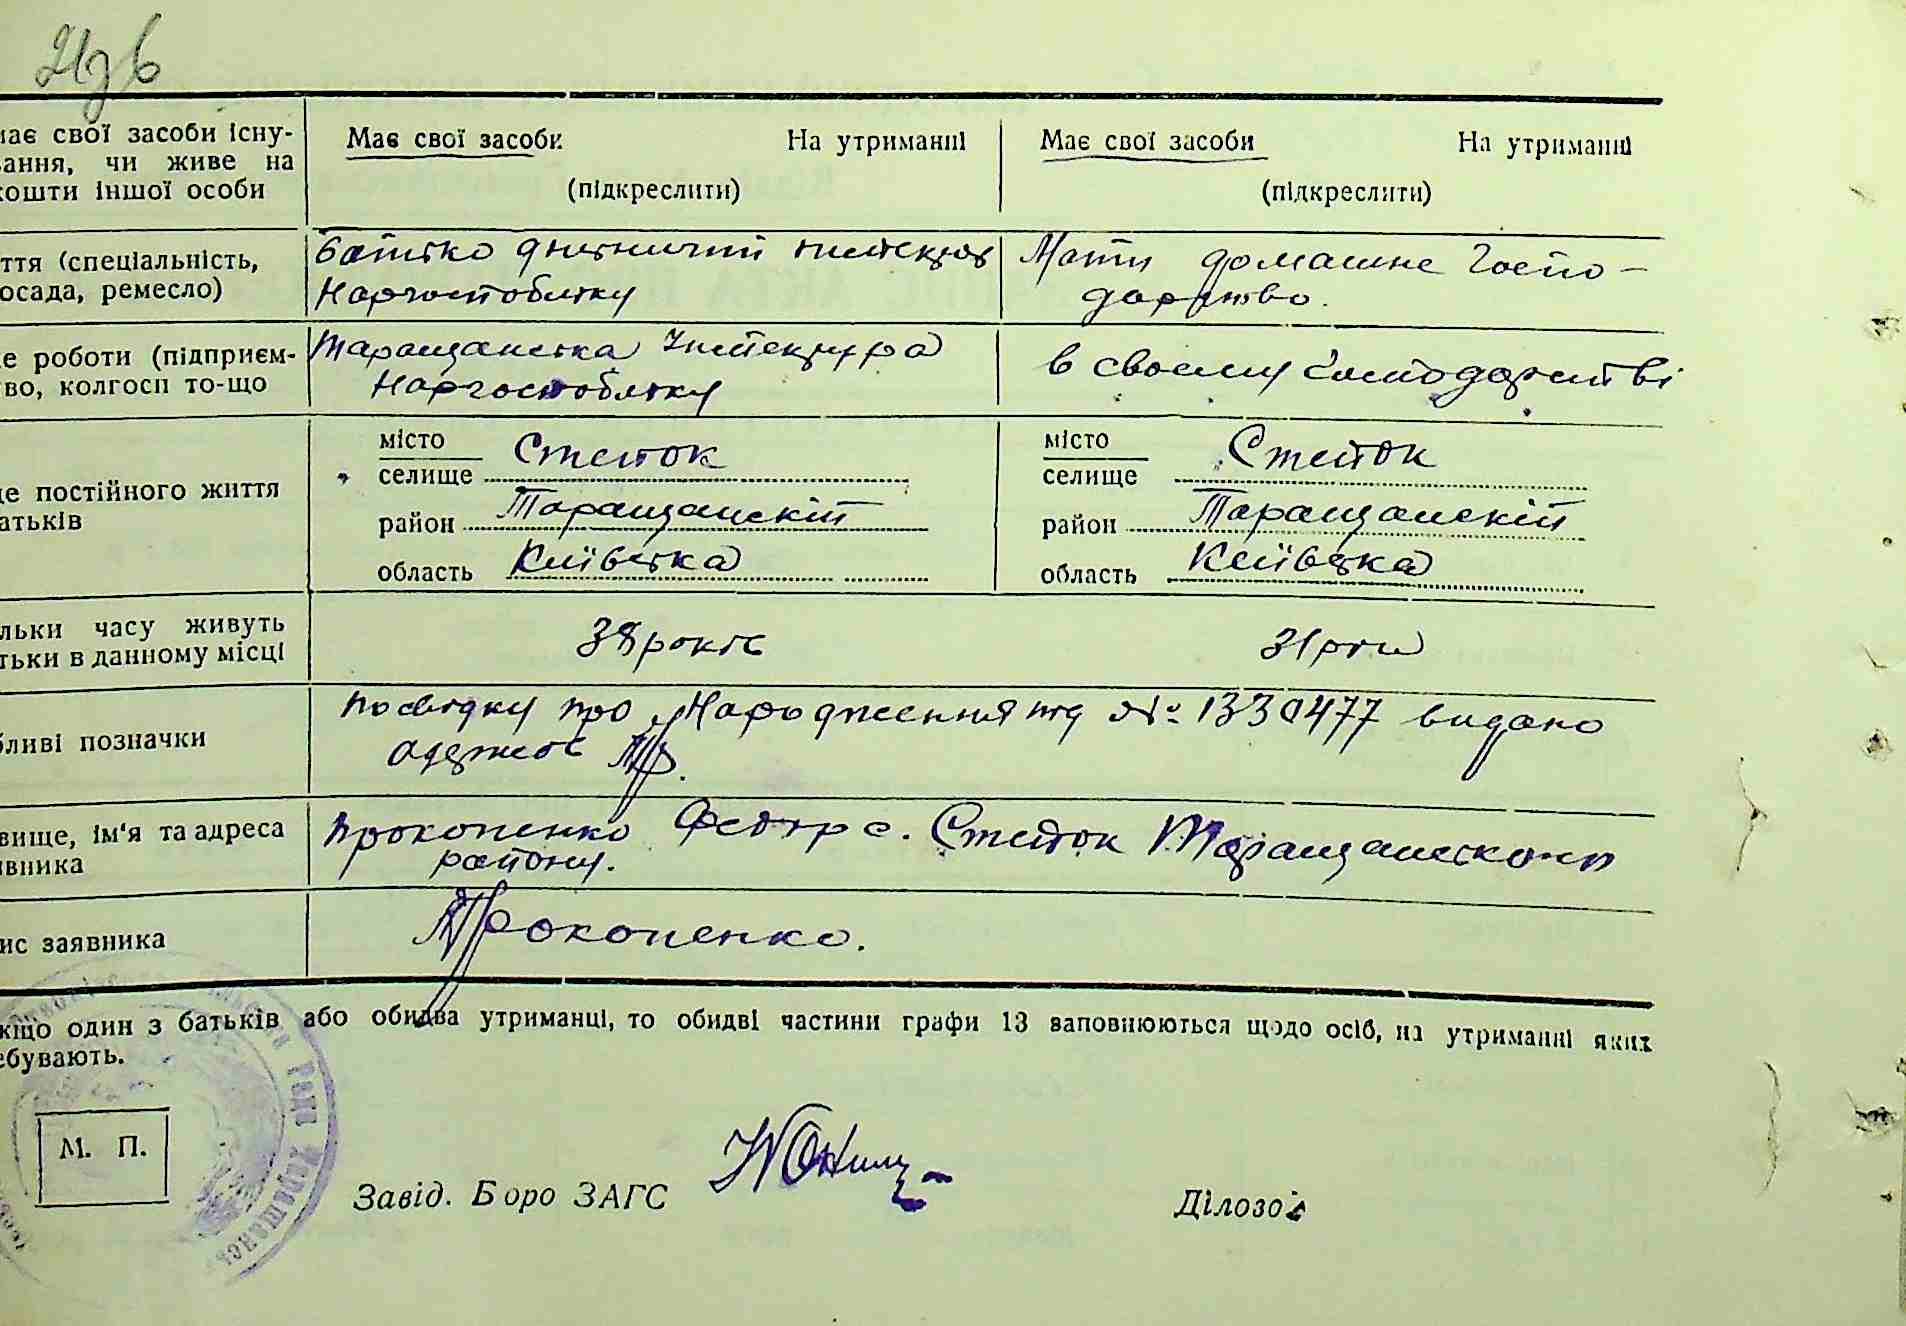 має свої засоби існу-
вання, чи живе на
кошти іншої особи
Має свої засоби На утриманні
(підкреслити)
Має свої засоби На утриманні
(підкреслити)
ття (спеціальність,
осада, ремесло)
Батько дільничий інспектор
Наргоспобліку
Мати домашнє Госпо-
дарство.
е роботи (підприєм-
во, колгосп то-що
Таращанська Інспектура
Наргоспобліку
в своєму господарстві
це постійного життя
атьків
місто
селище Степок
район Таращанскій
область Київська
місто
селище Степок
район Таращанскій
область Київска
льки часу живуть
тьки в данному місці
38 років
31 рік
бливі позначки
посвідку про Народження під № 1330477 видано
одержав
вище, ім'я та адреса
явника
Прокопенко Федір с. Степок Таращанского
району.
ис заявника
Прокопенко.
кщо один з батьків або обидва утриманці, то обидві частини графи 13 заповнюються щодо осіб, на утриманні яких
ебувають.
М. П.
Завід. Бюро ЗАГС
Діловод